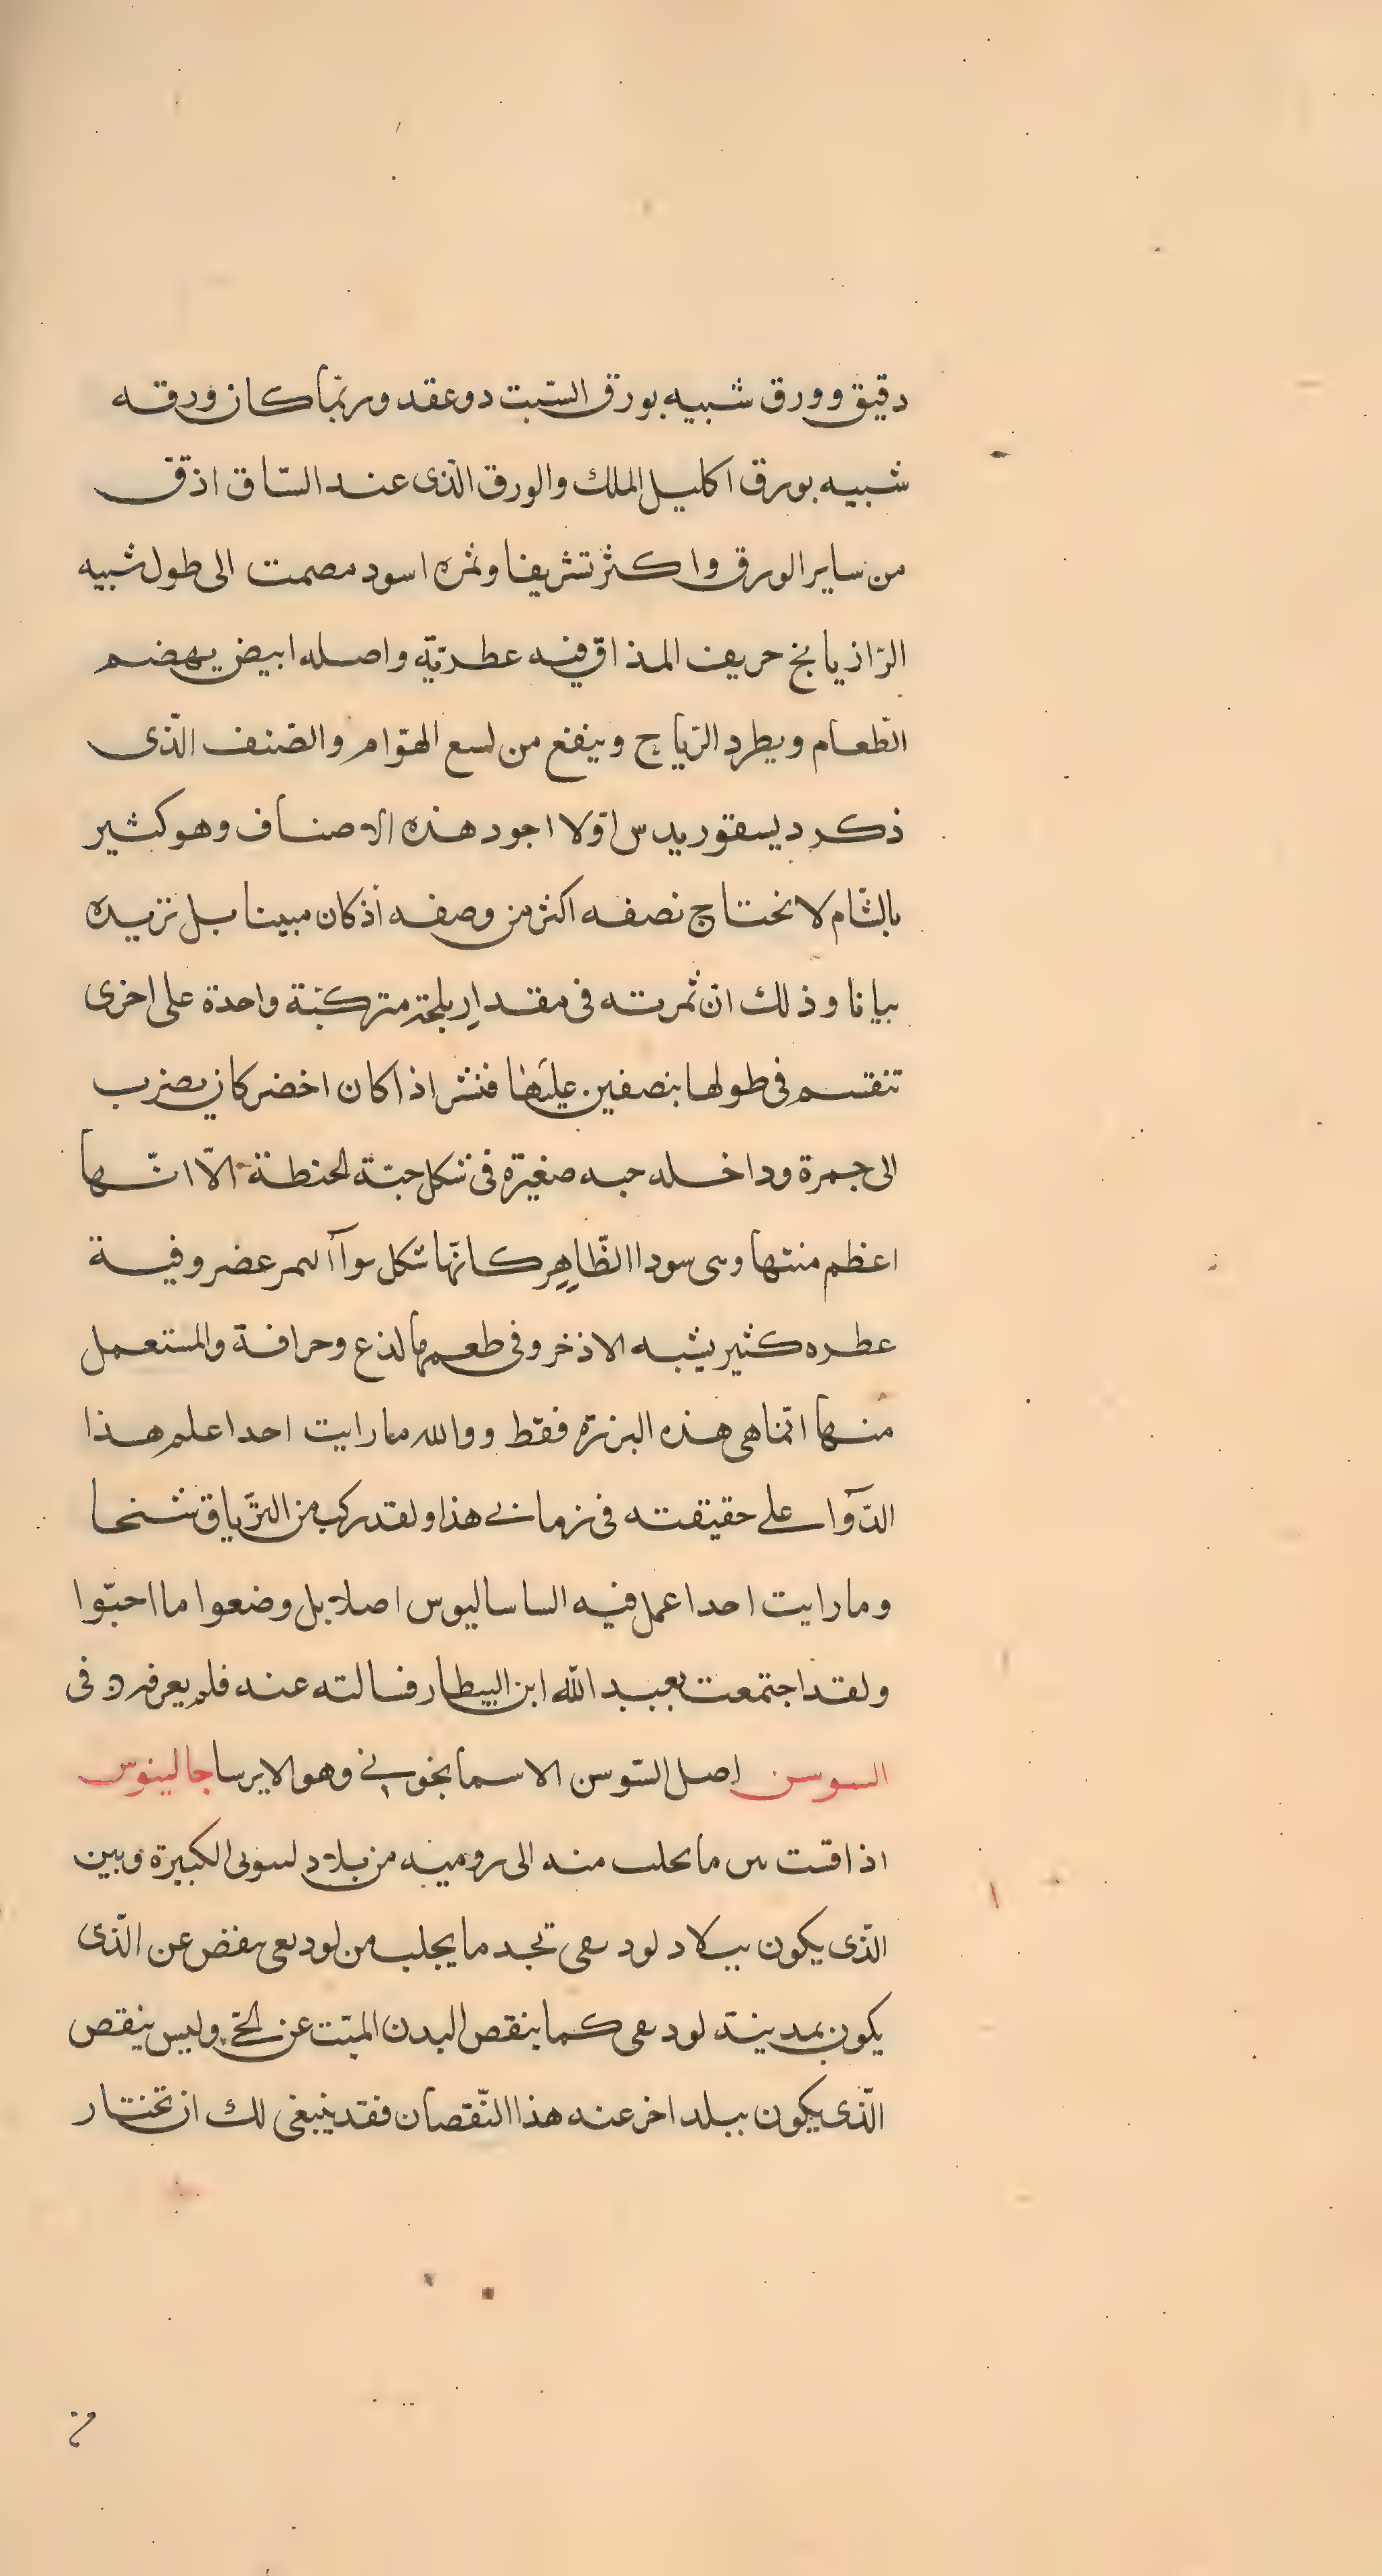 دقيق وورق شبيه بورق الشبت دوعقد وربّما كان ورقه
شبيه بورق اكليل الملك والورق الّذى عند السّاق اذقّ
من ساير الورق واكثر تشريفا وثمره اسود مصمت الى طول شبيه
الرّازيانج حريف المذاق فيه عطريّة واصله ابيض يهضم
الطّعام ويطرد الرّياح وينفع من لسع الهوّام والصّنف الّذى
ذكر ديسقوريدس اوّلا اجود هذه الاصناف وهو كثير
بالشّام لا نحتاج نصفه اكثر من وصفه اذ كان مبينا بل نزيده
بيانا وذلك انّ ثمرته فى مقدار بلحة متركبّة واحدة على اخرى
تنقسم فى طولها بنصفين عليها قشر اذا كان اخضر كان يضرب
الى حمرة وداخله حبه صغيرة فى شكل حبّة الحنطة الّا انّها
اعظم منها وهى سودا الظّاهر كانّها شكل نوا التمر وفيه
عطره كثير يشبه الاذخر وفى طعمها لذع وحرافة والمستعمل
منها انّما هى هذه البزرة فقط ووالله ما رايت احدا علم هذا
الدّوا على حقيقته فى زمانى هذا ولقد ركب من التّرياق نسخا
وما رايت احدا عمل فيه الساساليوس اصلا بل وضعوا ما احبّوا
ولقد اجتمعت بعبد الله ابن البيطار فسالته عنه فلم يعرفه فى
السوسن اصل السّوسن الاسمانجونى وهو الايرسا جالينوس
اذا قست بين ما يجلب منه الى روميه من بلاد الكبيرة وبين
الّذى يكون ببلاد تجد ما يجلب من ينقص عن الّذى
يكون بمدينة كما ينقص البدن الميّت عن الحىّ وليس ينقص
الّذى يكون ببلد اخر عنه هذا النّقصان فقد ينبغى لك ان تختار